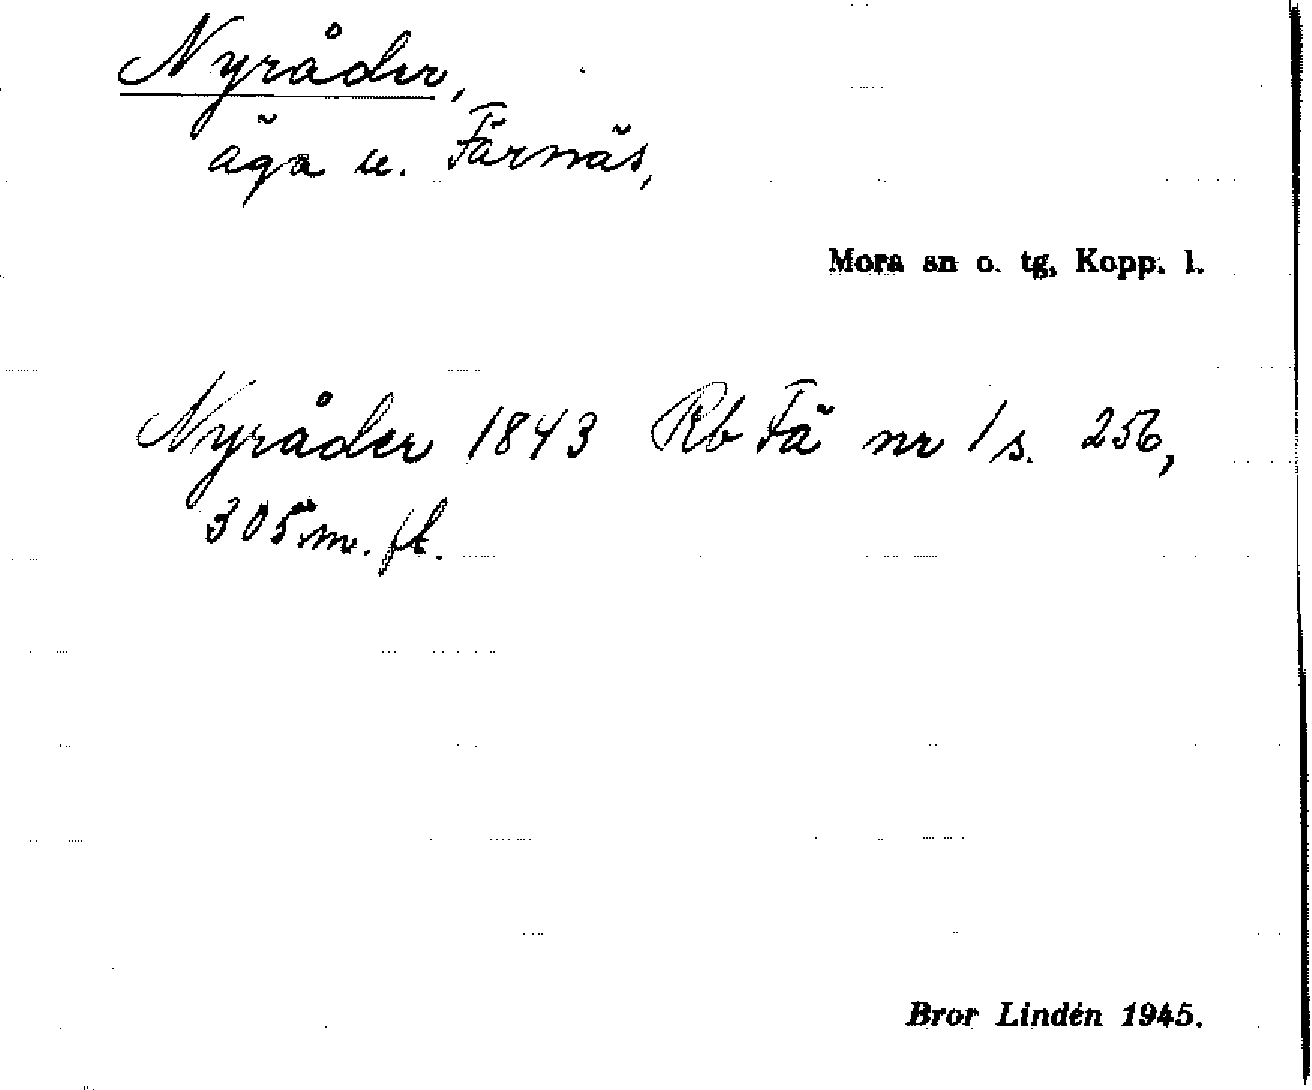 Nyråder,
äga u. Färnäs,
Mora sn o. tg, Kopp. l.
Nyråder 1843 Rb Fä nr 1 s. 256,
305 m. fl.
Bror Lindén 1945.